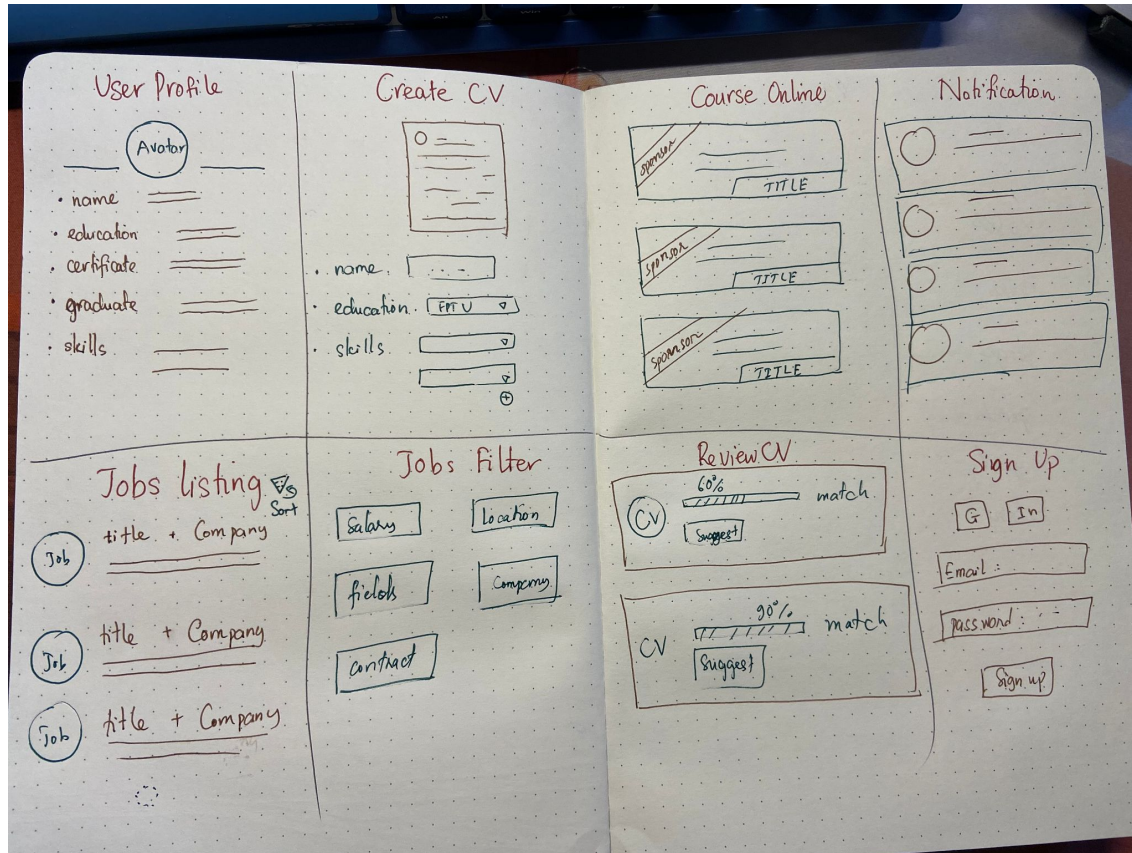 User Profile
Avatar
• name
• education
• certificate
• graduate
• skills
Create CV
• name
• education FPT U
• skills
Course Online
sponsor
TITLE
sponsor
TITLE
sponsor
TITLE
Notification
Jobs listing
Sort
Job title + Company
Job title + Company
Job title + Company
Jobs Filter
Salary Location
fields Company
contract
Review CV
60%
CV match
Suggest
90%
CV match
Suggest
Sign Up
G In
Email :
password :
Sign up